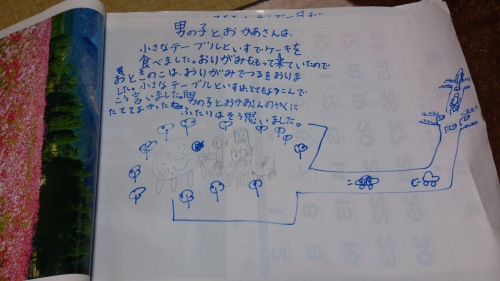 男の子とおかあさんは、
小さなテーブルといすでケーキを
食べました。おりがみをもって来ていたので
おとこのこは、おりがみでつるをおりま
した。小さなテーブルといすは、とてもよろこんで
こう言いました。男の子とおかあさんのやくに
たててよかったね。
ふたりはそう思いました。